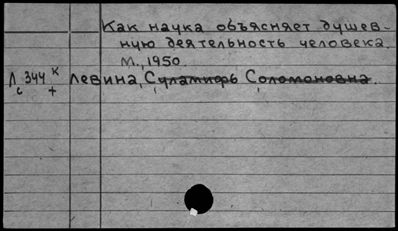 Как наука объясняет душев-
ную деятельность человека.
М., 1950.
Л 344 к Левина, Суламифь Соломоновна.
с +